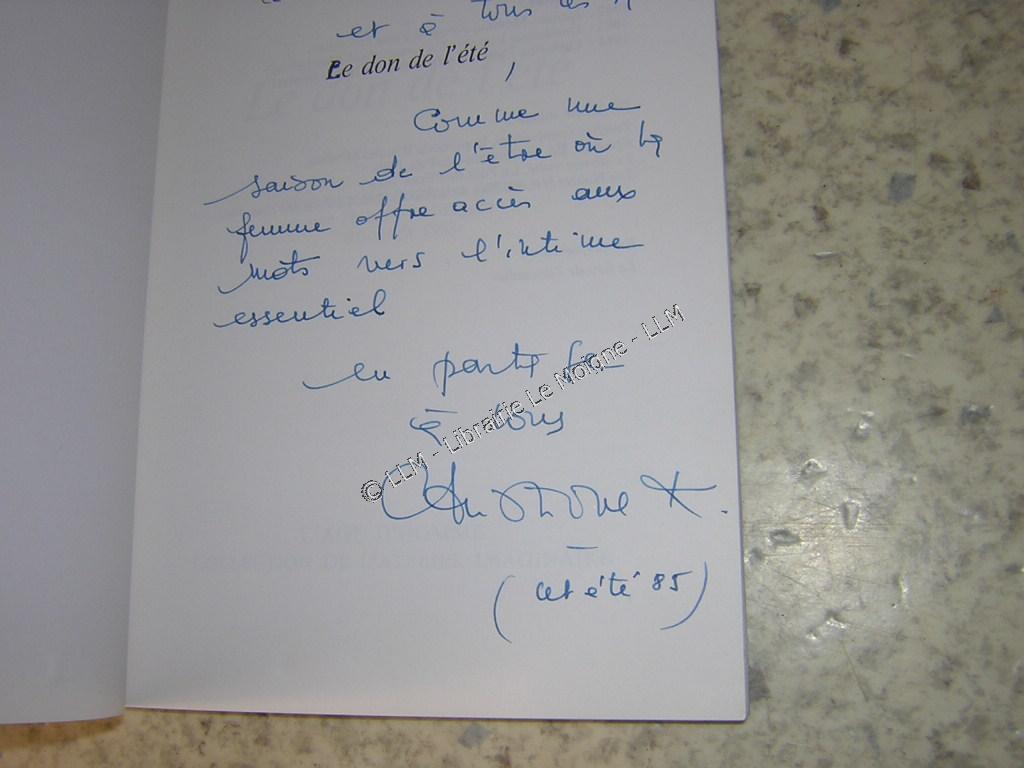 et à tous les
Le don de l'été
,
Comme une
saison de l'être où la
femme offre accès aux
mots vers l'intime
essentiel
en partage
à tous
© LLM - Librairie Le Moigne - LLM
Christiane K.
(cet été 85)